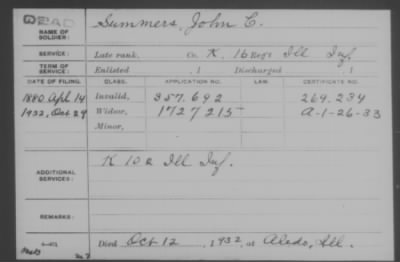 DEAD
NAME OF SOLDIER: Summers, John C.
SERVICE: Late rank, Co. K, 16 Reg't Ill Inf.
TERM OF SERVICE: Enlisted , 1 Discharged , 1
DATE OF FILING. CLASS. APPLICATION NO. LAW. CERTIFICATE NO.
1880 Apl 14 Invalid, 357.692 269.234
1932, Oct 29 Widow, 1727215 A-1-26-33
Minor,
ADDITIONAL SERVICES: K 102 Ill Inf.
REMARKS:
Died Oct 12, 1932, at Aledo, Ill.